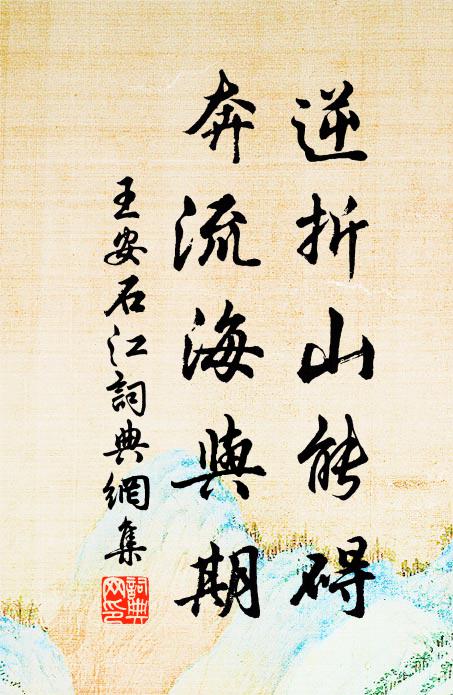 逆折山能碍
奔流海與期
王安石江詞典網集
詞典網印